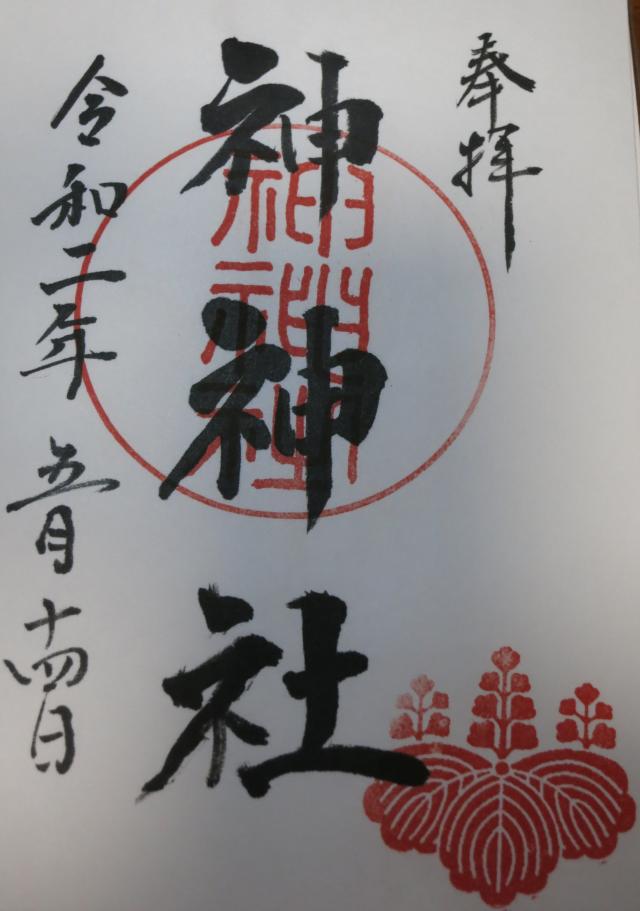 奉拝
神神社
令和二年五月十四日